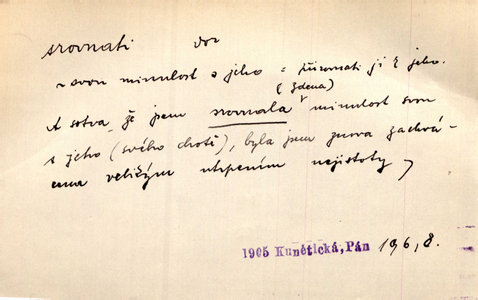 srovnati   dok
~ svou minulost s jeho = přirovnati ji k jeho.
(Zdena)
A sotva, že jsem srovnala minulost svou
s jeho (svého choti), byla jsem znova zachvá-
cena velikým utrpením nejistoty,
1905 Kunětická, Pán 196, 8.